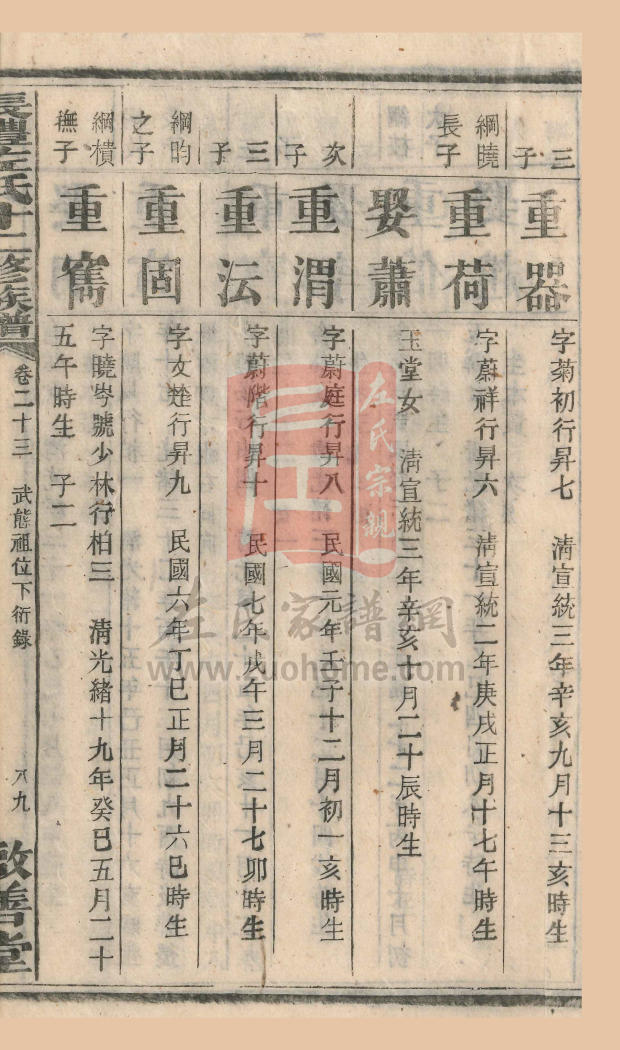 三子
重器
字菊初行昇七 清宣統三年辛亥九月十三亥時生
綱曉長子
重荷
字蔚祥行昇六 清宣統二年庚戌正月十七午時生
娶蕭
玉堂女 清宣統三年辛亥十月二十辰時生
次子
重渭
字蔚庭行昇八 民國元年壬子十二月初一亥時生
三子
重沄
字蔚階行昇十 民國七年戊午三月二十七卯時生
綱昀之子
重固
字文楚行昇九 民國六年丁巳正月二十六巳時生
綱樻撫子
重寯
字曉岑號少林行柏三 清光緒十九年癸巳五月二十
五午時生 子二
長澧左氏十二修族譜 卷二十三 武態祖位下衍錄 八九 敦善堂
左氏宗親
左氏家譜網
www.zuohome.com